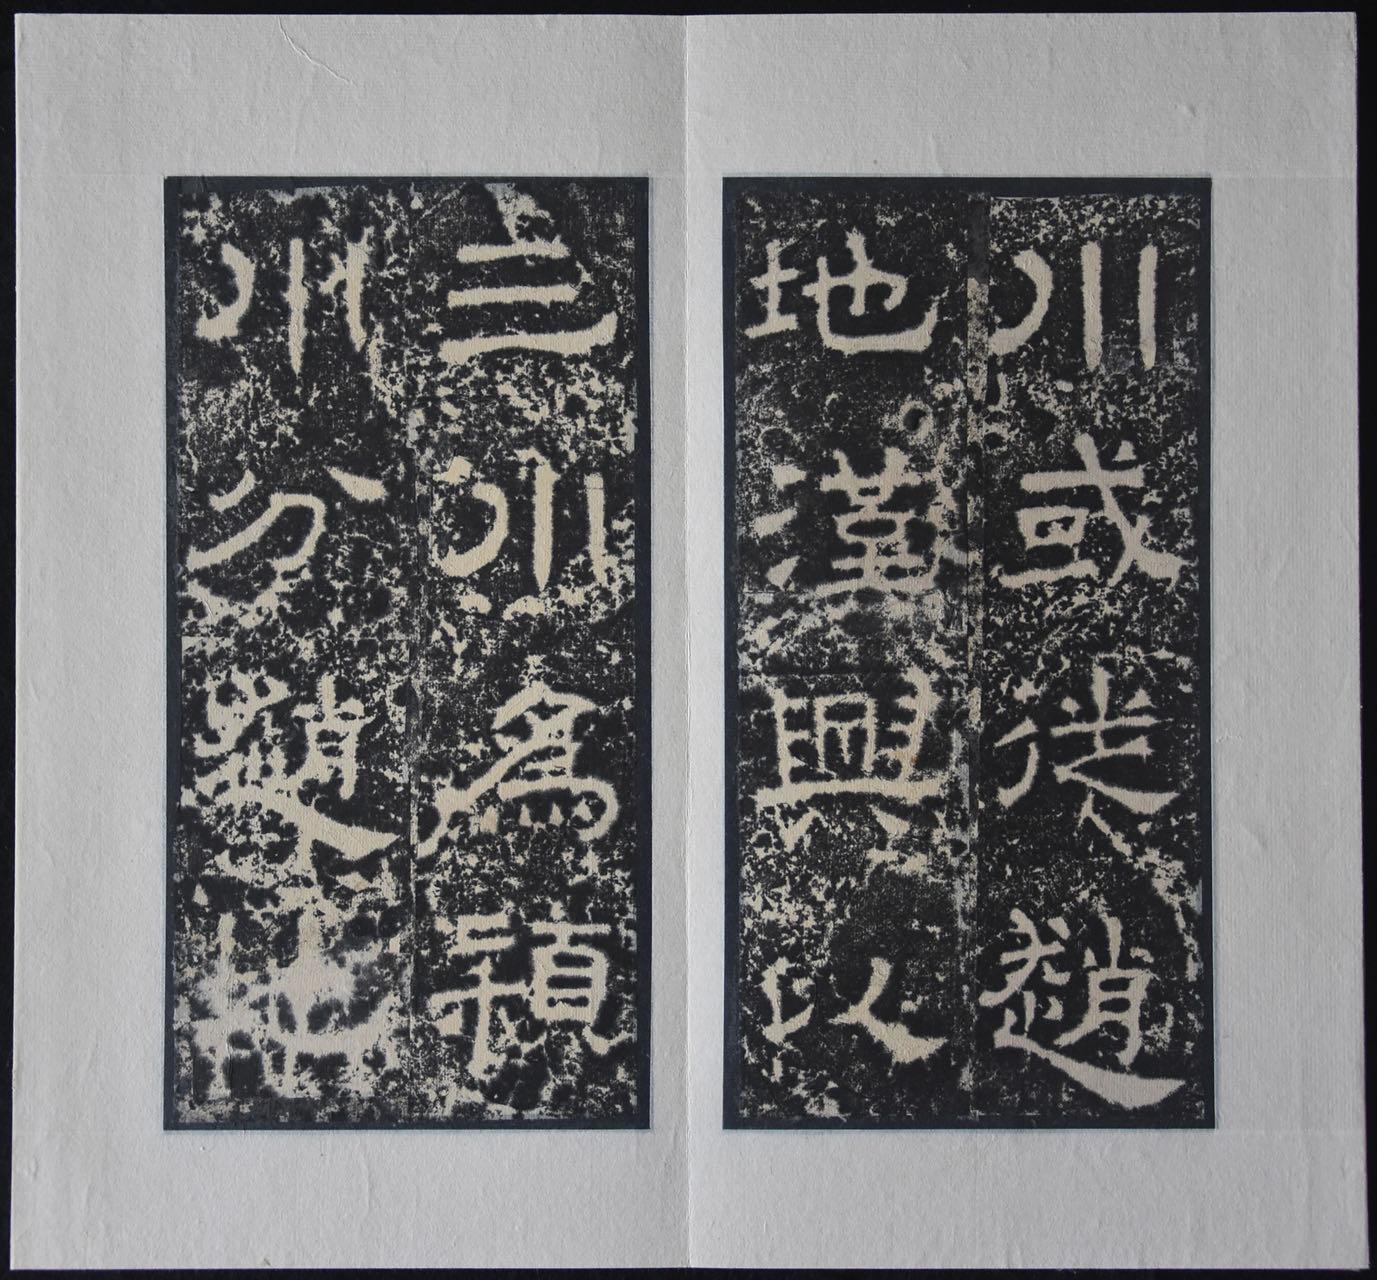 川或徙趙
地漢興以
三川爲穎
川分趙地